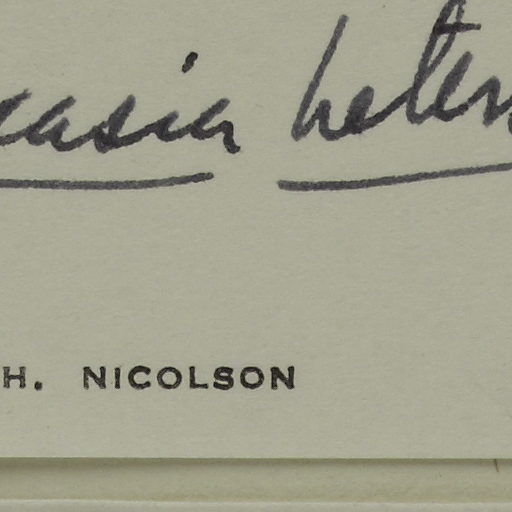 casia heter
H. NICOLSON